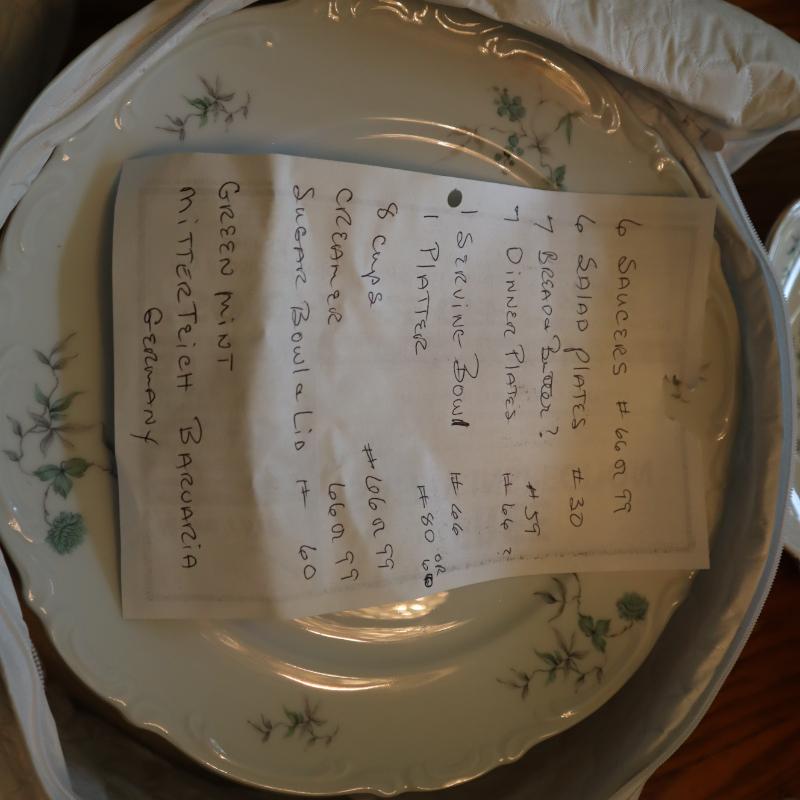 6 SAUCERS # 66 OR 99
6 SALAD PLATES # 30
7 BREAD & Butter? # 59
7 DINNER PLATES # 66?
1 SERVING Bowl # 66
1 PLATTER # 80 OR 60
8 cups # 66 OR 99
CREAMER 66 OR 99
SUGAR BOWL & LID # 60
GREEN MINT
MITTERTEICH BARVARIA
GERMANY